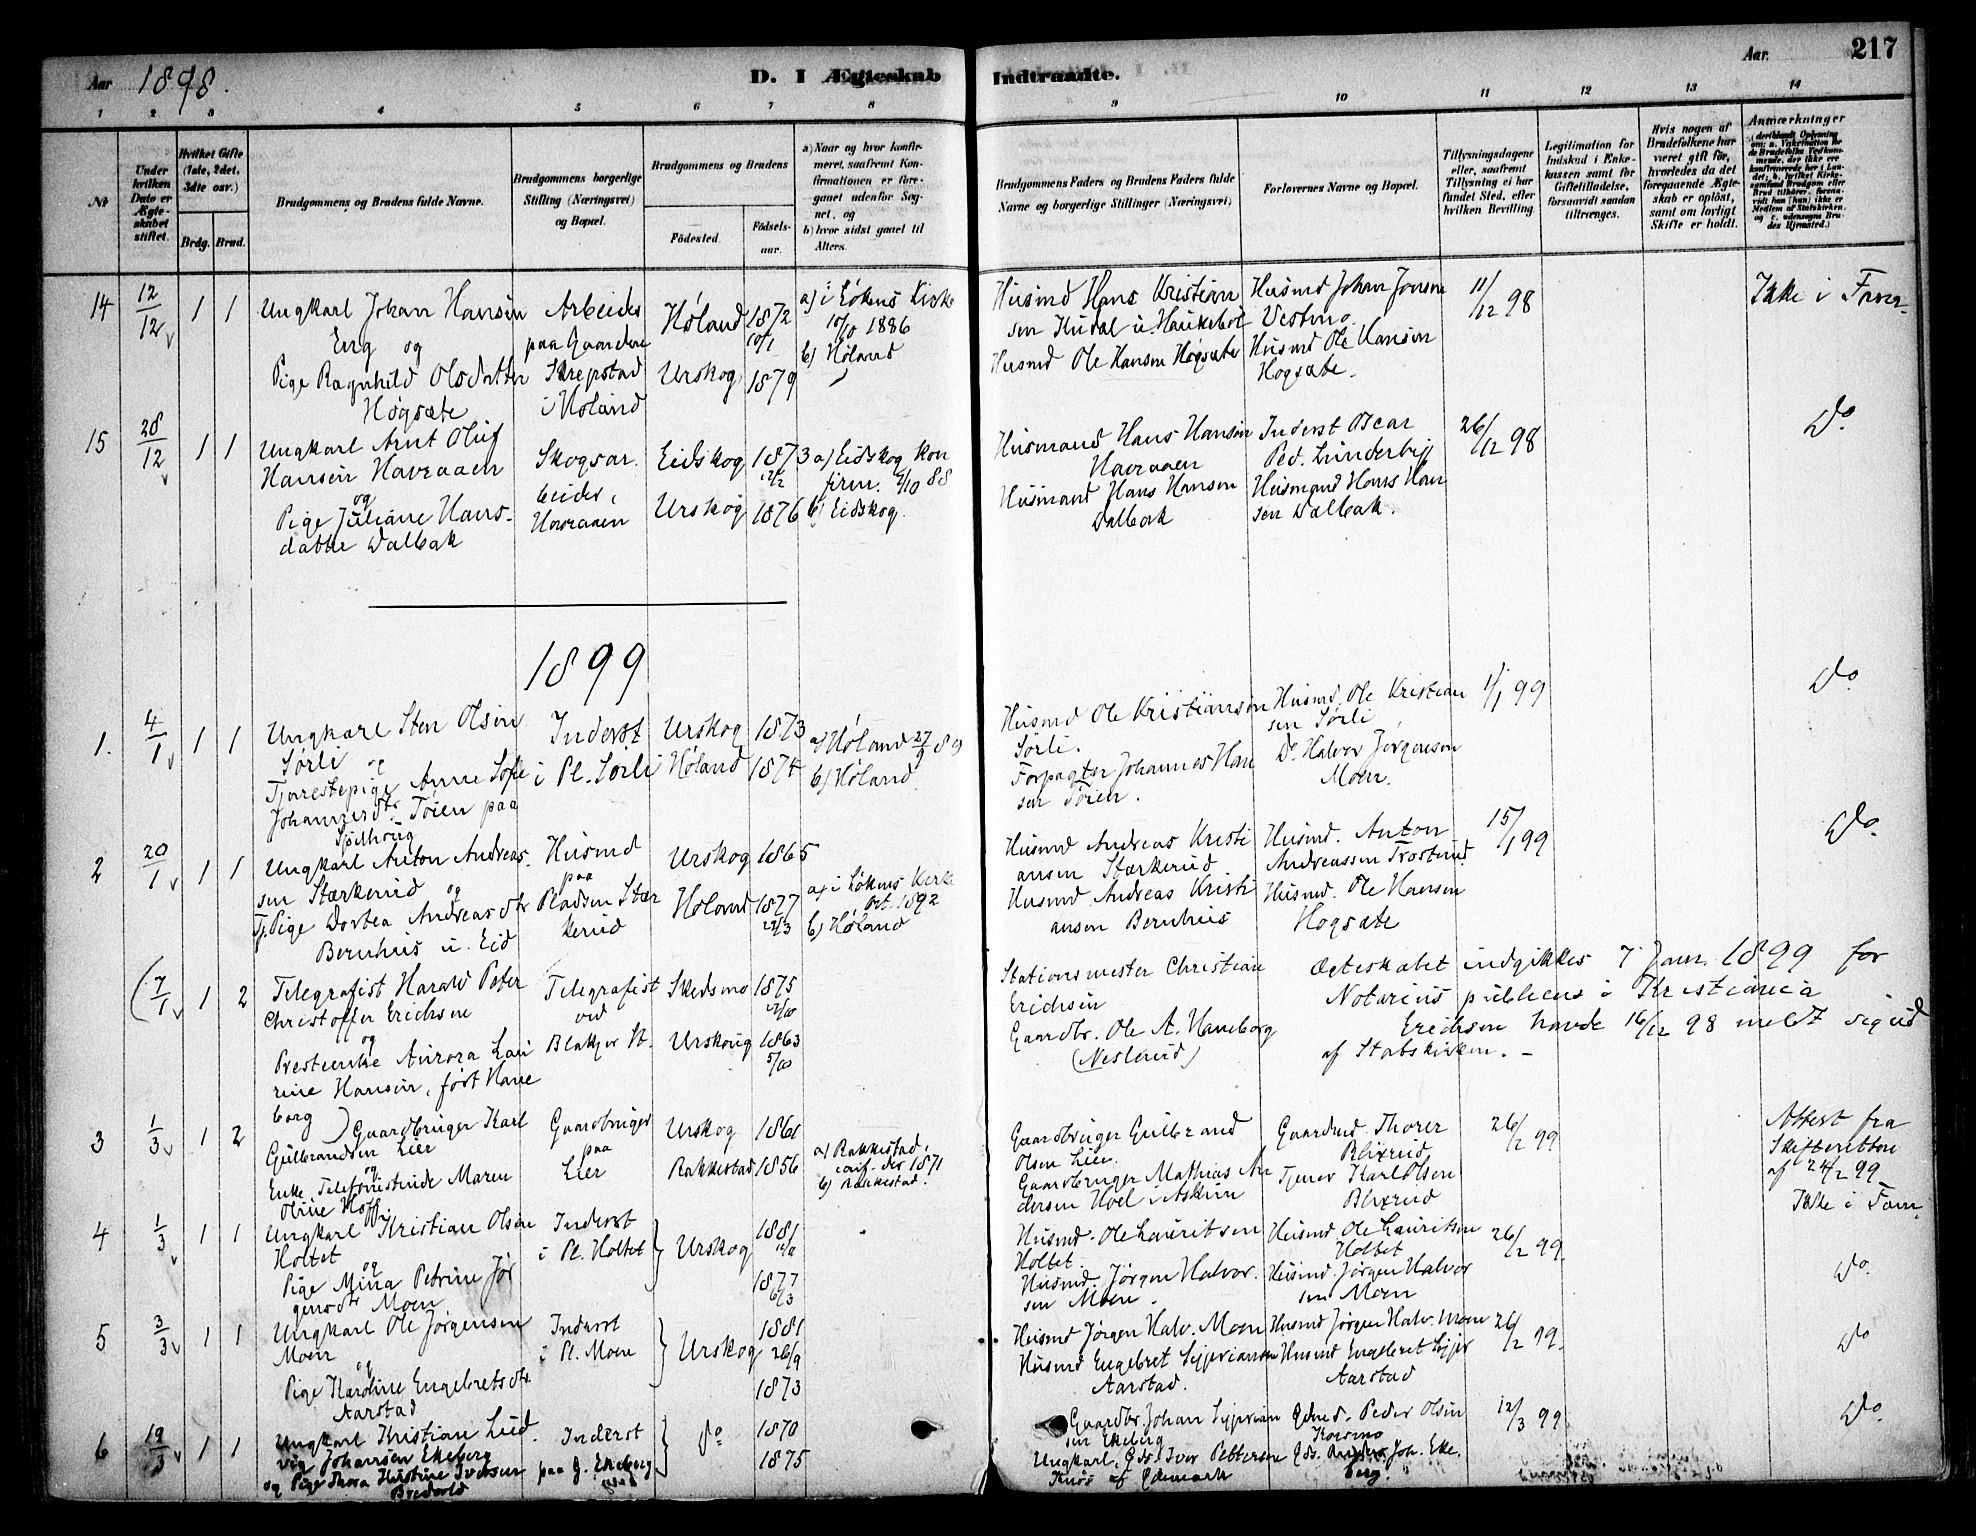 Aar 1898. D. I Ægteskab Indtraadte. Aar. 217
1 2 3 4 5 6 7 8 9 10 11 12 13 14
№
Under hvilken Dato er Ægteskabet stiftet.
Hvilket Gifte (1ste, 2det, 3die osv.)
Brdg. Brud.
Brudgommens og Brudens fulde Navne.
Brudgommens borgerlige Stilling (Næringsvei) og Bopæl.
Brudgommens og Brudens
Födested. Födselsaar.
a) Naar og hvor konfirmeret, saafremt Konfirmationen er foregaaet udenfor Sognet, og
b) hvor sidst gaaet til Alters.
Brudgommens Faders og Brudens Faders fulde Navne og borgerlige Stillinger (Næringsvei)
Forlovernes Navne og Bopæl.
Tillysningsdagene eller, saafremt Tillysning ei har fundet Sted, efter hvilken Bevilling.
Legitimation for Indskud i Enkekassen samt for Giftetilladelse, forsaavidt saadan tiltrænges.
Hvis nogen af Brudefolkene har været gift för, hvorledes da det foregaaende Ægteskab er oplöst, samt om lovligt Skifte er holdt.
Anmærkninger
14 12/12 1 1
Ungkarl Johan Hansen
Eng og
Pige Ragnhild Olsdatter
Høgsæte
Arbeider
paa Gaardene
Skrepstad
i Høland
Høland 1872
10/1
Urskog 1879
a) i Løkens Kirke
10/10 1886
b) Høland
Husmd Hans Kristian
sen Husal u. Haukebøl
Husmd Ole Hansen Høgsæte
Husmd Johan Jonsen
Vestmo.
Husmd Ole Hansen
Høgsæte.
11/12 98
Ikke i Fam.
15 28/12 1 1
Ungkarl Arnt Oluf
Hansen Havraaen
og
Pige Juliane Hans-
datter Dalbak
Skogsar.
beider,
Havraaen
Eidskog 1873
12/2
Urskog 1876
a) Eidskog kon
firm. 9/10 88
b) Eidskog.
Husmand Hans Hansen
Havraaen
Husmand Hans Hansen
Dalbak
Inderst Oscar
Ped. Linderby
Husmand Hans Han
sen Dalbak.
26/12 98
Do
1899
1. 4/1 1 1
Ungkarl Sten Olsen
Sørli og
Tjenestepige Anne Sofie
Johannesdtr Tøien paa
Sjølhoug
Inderst
i Pl. Sørli
Urskog 1873
Høland 1874
a) Høland 27/9 89
b) Høland.
Husmd Ole Kristiansen
Sørli.
Forpagter Johannes Han
sen Tøien.
Husmd. Ole Kristian
sen Sørli
Do Halvor Jørgensen
Moen.
1/1 99
Do
2 20/1 1 1
Ungkarl Anton Andreas-
sen Stærkerud og
Tj.Pige Dortea Andreasdtr
Bernhus u. Eid
Husmd
paa
Pladsen Stær
kerud
Urskog 1865
Høland 1877
a) i Løkens Kirke
Oct. 1892
b) Høland
Husmd Andreas Kristi
ansen Stærkerud
Husmd Andreas Kristi
ansen Bernhus
Husmd. Anton
Andreassen Trosterud
Husmd. Ole Hansen
Høgsæte
15/1 99
Do.
(7/1 1 2
Telegrafist Harald Peter
Christoffer Erichsen
og
Prestenke Aurora Lau
rine Hansen, født Hane
borg )
Telegrafist
ved
Blakjer St.
Skedsmo 1875
Urskoug 1863
Stationsmester Christian
Erichsen
Gaardbr. Ole A. Haneborg
(Neslund)
Ægteskabet indgikkes 7 Janr. 1899 for
Notarius publicus i Kristiania
Erichsen havde 16/12 98 meldt sig ud
af Statskirken. -
3 1/3 1 2
Gaardbruger Karl
Gulbrandsen Lier
og
Enke, Telefonistinde Maren
Oline Hoff.
Gaardbruger
paa
Lier
Urskog 1861
Rakkestad 1856
a) Rakkestad,
conf. der 1871
b) Rakkestad.
Gaardbruger Gulbrand
Olsen Lier.
Gaardbruger Mathias An
dersen Hoel i Askim
Gaardmd. Thorer
Blixrud
Tjener Karl Olsen
Blixrud
26/2 99
Attest fra
Skifteretten
af 24/2 99
Ikke i Fam.
4 1/3 1 1
Ungkarl Kristian Olsen
Holtet
og
Pige Mina Petrine Jør
gensdtr Moen
Inderst
i Pl. Holtet
Urskog
1881
1877
6/3
Husmd. Ole Lauritsen
Holtet.
Husmd. Jørgen Halvor.
sen Moen.
Husmd Ole Lauritsen
Holtet
Husmd. Jørgen Halvor
sen Moen
26/2 99
Do.
5 3/3 1 1
Ungkarl Ole Jørgensen
Moen
og
Pige Karoline Engebretsdtr
Aarstad
Inderst
i Pl. Moen
Urskog
1881
26/9
1873
Husmd Jørgen Halv. Moen
Husmd Engebret Syveriansen
Aarstad.
Husmd Jørgen Halv. Moen
Husmd Engebret Syver
Aarstad
26/2 99.
Do
6 19/3 1 1
Ungkarl Kristian Lud.
vig Johansen Ekeberg
og Pige Thora Kristine Iversen
Bredvold
Inderst
paa G. Ekeberg
Do
1870
1875
Gaardbr. Johan Syverian
sen Ekeberg
Ungkarl, Gds. Iver Pettersen
Gdmd. Peder Olsen
Kørsmo
Joh. Eke.
berg.
12/3 99
Do.